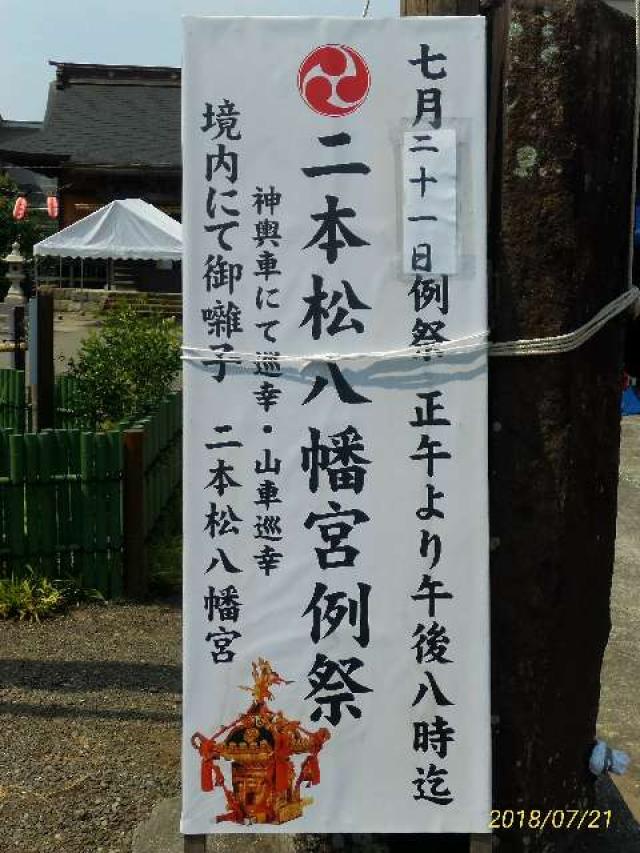 七月二十一日例祭　正午より午後八時迄
二本松八幡宮例祭
神輿車にて巡幸・山車巡幸
境内にて御囃子　二本松八幡宮
2018/07/21